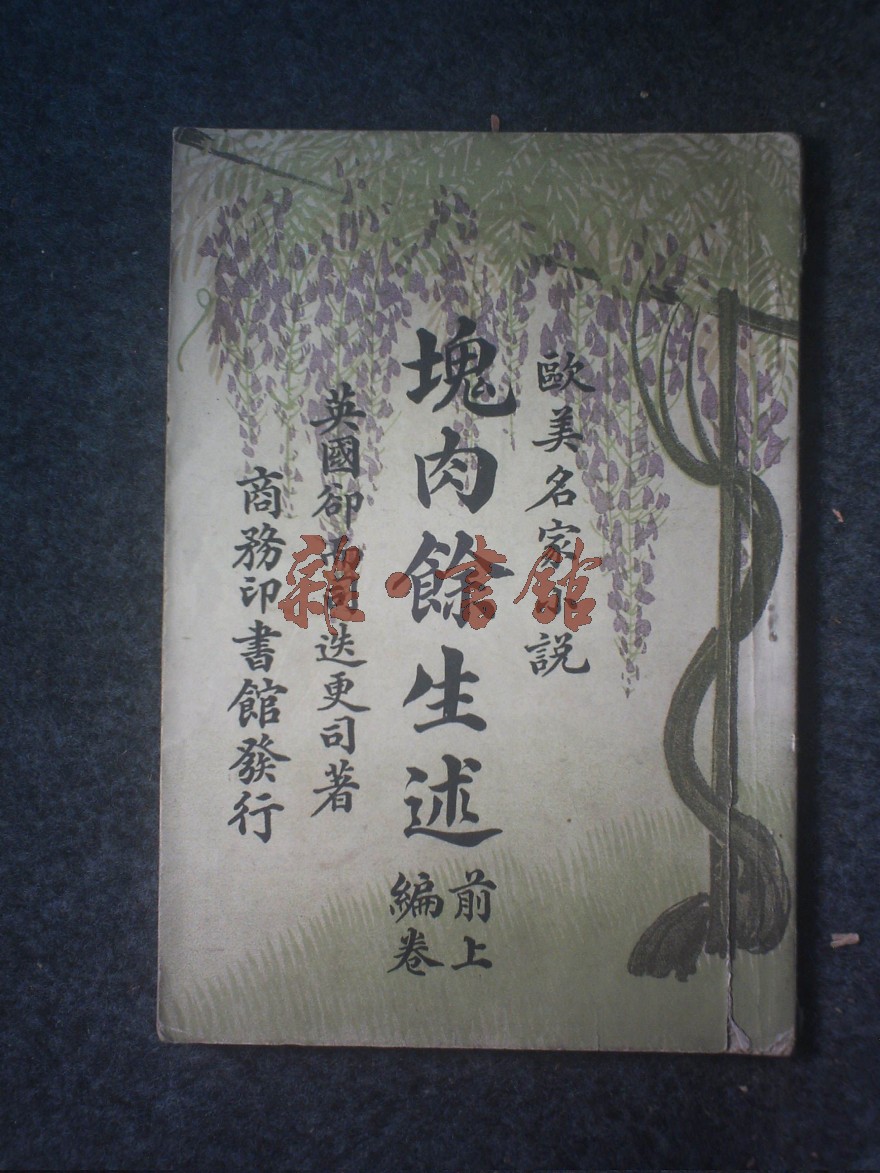 歐美名家小説
塊肉餘生述
前編
上卷
英國卻而司迭更司著
商務印書館發行
雜·書館